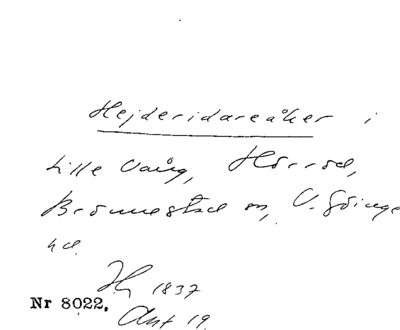 Hejderidareåker i
Lille Vång, Hörröd,
Brönnestad sn, V. Göinge
hd.
1837
Nr 8022.
Akt 19